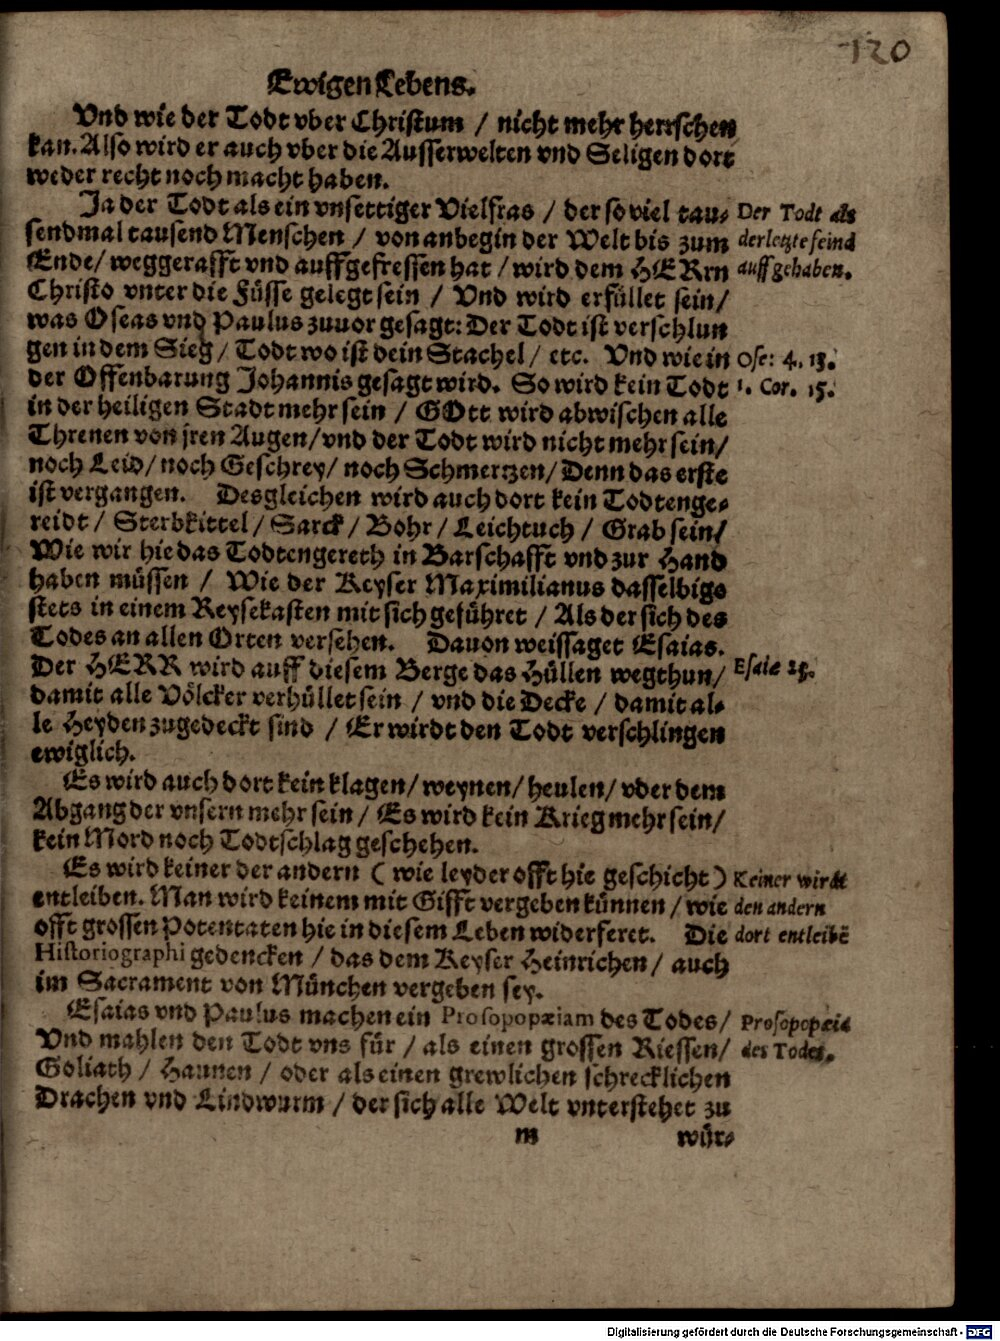 120
Ewigen Lebens.
Vnd wie der Todt vber Christum / nicht mehr herrschen
kan. Also wird er auch vber die Ausserwelten vnd Seligen dort
weder recht noch macht haben.
Ja der Todt als ein vnsettiger Vielfras / der so viel tau-
sendmal tausend Menschen / von anbegin der Welt bis zum
Ende / weggerafft vnd auffgefressen hat / wird dem HERrn
Christo vnter die Füsse gelegt sein / Vnd wird erfüllet sein /
was Oseas vnd Paulus zuuor gesagt: Der Todt ist verschlun
gen in dem Sieg / Todt wo ist dein Stachel / etc. Vnd wie in
der Offenbarung Johannis gesagt wird. So wird kein Todt
in der heiligen Stadt mehr sein / GOtt wird abwischen alle
Threnen von jren Augen / vnd der Todt wird nicht mehr sein /
noch Leid / noch Geschrey / noch Schmertzen / Denn das erste
ist vergangen. Desgleichen wird auch dort kein Todtenge-
reidt / Sterbkittel / Sarck / Bohr / Leichtuch / Grab sein /
Wie wir hie das Todtengereth in Barschafft vnd zur Hand
haben müssen / Wie der Keyser Maximilianus dasselbige
stets in einem Reysekasten mit sich geführet / Als der sich des
Todes an allen Orten versehen. Dauon weissaget Esaias.
Der HERR wird auff diesem Berge das Hüllen wegthun /
damit alle Völcker verhüllet sein / vnd die Decke / damit al-
le Heyden zugedeckt sind / Er wirdt den Todt verschlingen
ewiglich.
Es wird auch dort kein klagen / weynen / heulen / vber dem
Abgang der vnsern mehr sein / Es wird kein Krieg mehr sein /
kein Mord noch Todtschlag geschehen.
Es wird keiner der andern ( wie leyder offt hie geschicht )
entleiben. Man wird keinem mit Gifft vergeben künnen / wie
offt grossen Potentaten hie in diesem Leben widerferet. Die
Historiographi gedencken / das dem Keyser Heinrichen / auch
im Sacrament von München vergeben sey.
Esaias vnd Paulus machen ein Prosopopæiam des Todes /
Vnd mahlen den Todt vns für / als einen grossen Riessen /
Goliath / Haunen / oder als einen grewlichen schrecklichen
Drachen vnd Lindwurm / der sich alle Welt vnterstehet zu
m
wür-
Der Todt als
der letzte feind
auffgehaben.
Ose: 4. 13.
1. Cor. 15.
Esaie 25.
Keiner wirdt
den andern
dort entleibē
Prosopopæia
des Todes.
Digitalisierung gefördert durch die Deutsche Forschungsgemeinschaft - DFG